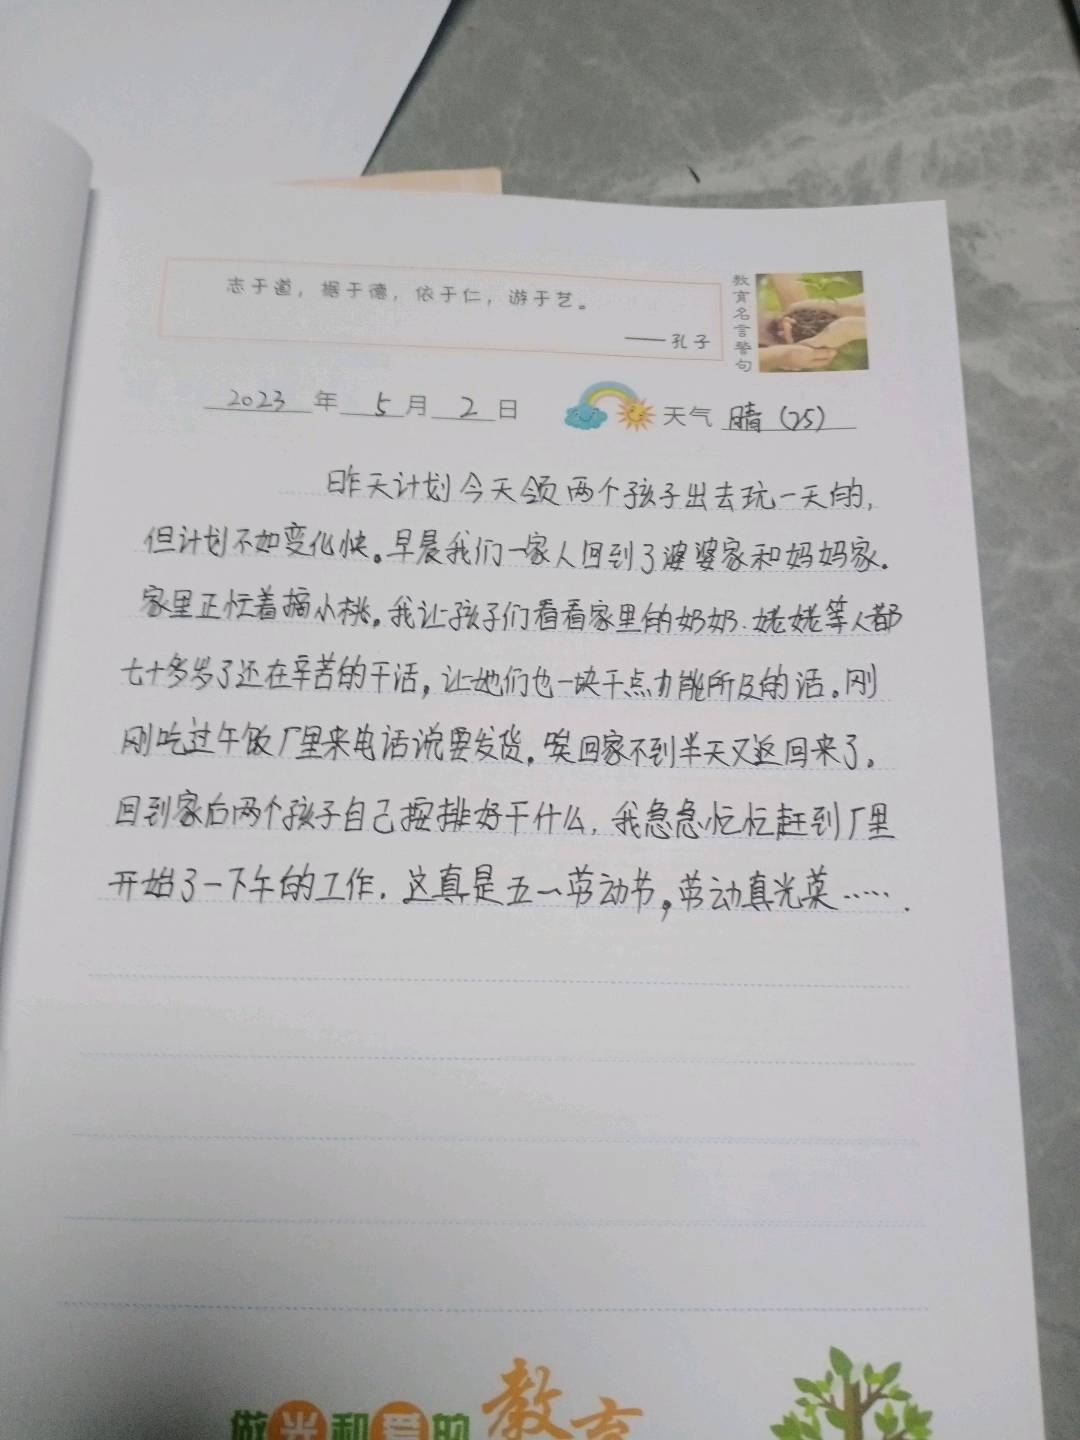 志于道，据于德，依于仁，游于艺。
——孔子
教育名言警句
2023年5月2日 天气 晴（25）
昨天计划今天领两个孩子出去玩一天的，
但计划不如变化快。早晨我们一家人回到了婆婆家和妈妈家。
家里正忙着摘小桃。我让孩子们看看家里的奶奶、姥姥等人都
七十多岁了还在辛苦的干活，让她们也一块干点力能所及的活。刚
刚吃过午饭厂里来电话说要发货。唉回家不到半天又返回来了。
回到家后两个孩子自己按排好干什么，我急急忙忙赶到厂里
开始了一下午的工作．这真是五一劳动节，劳动真光荣……．
做光和爱的教育